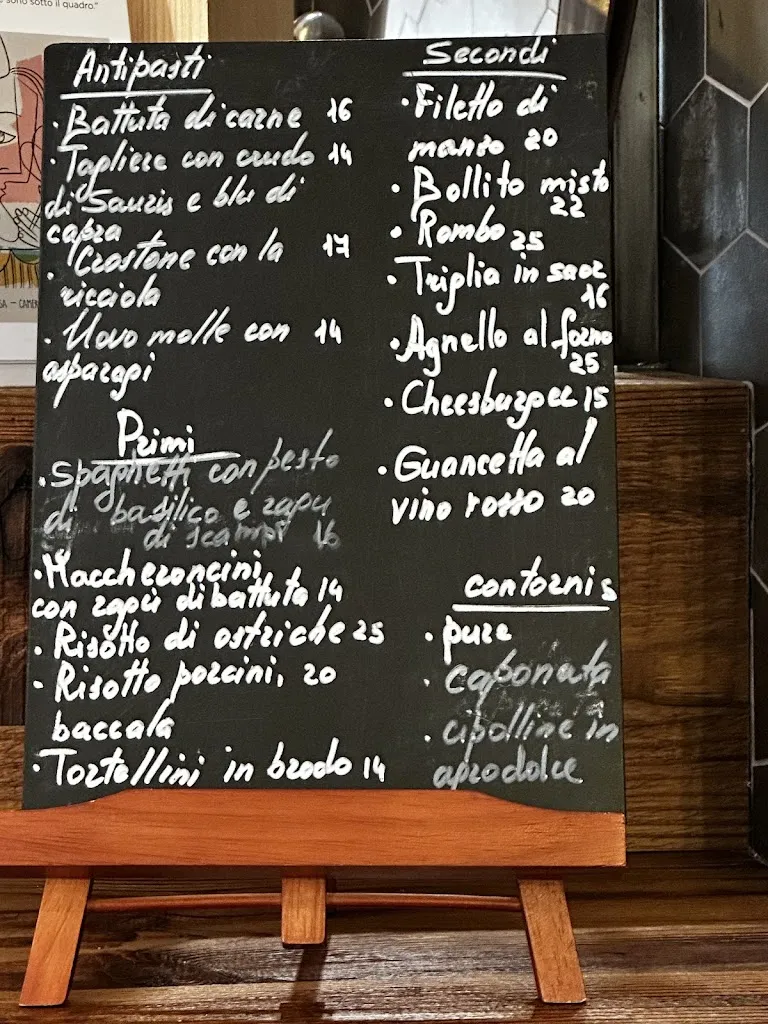 sono sotto il quadro."
Antipasti
• Battuta di carne 16
• Tagliere con crudo 14
di Sauris e blu di
capra
• Crostone con la 17
ricciola
• Uovo molle con 14
asparagi
Primi
• Spaghetti con pesto
di basilico e ragu
di scampi 16
• Maccheroncini
con ragù di battuta 14
• Risotto di ostriche 25
• Risotto porcini, 20
baccala
• Tortellini in brodo 14
Secondi
• Filetto di
manzo 20
• Bollito misto
22
• Rombo 25
• Triglia in saor
16
• Agnello al forno
25
• Cheesburger 15
• Guancetta al
vino rosso 20
contorni 5
• pure
• caponata
• cipolline in
agrodolce